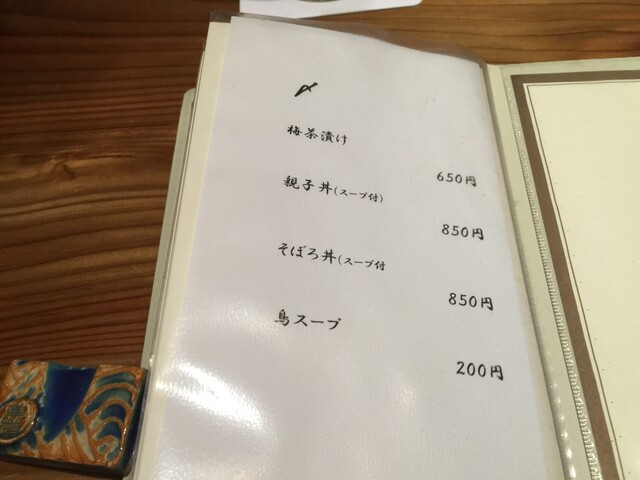 〆
梅茶漬け
650円
親子丼(スープ付)
850円
そぼろ丼(スープ付
850円
鳥スープ
200円